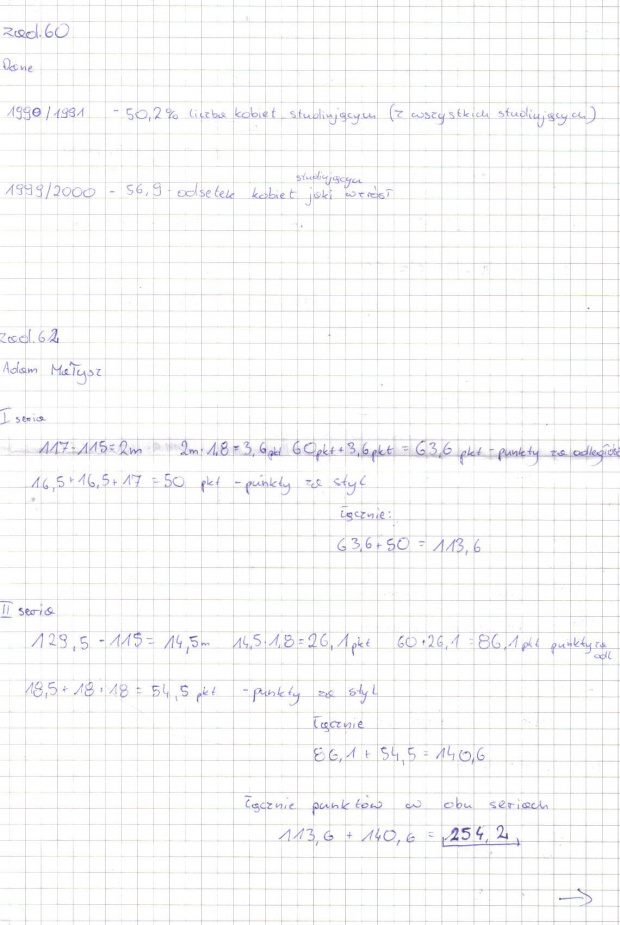 zad.60
Dane
1990/1991 - 50,2% liczba kobiet studiujących (z wszystkich studiujących)
studiujących
1999/2000 - 56,9 - odsetek kobiet jaki wzrósł
zad.62
Adam Małysz
I seria
117-115=2m 2m·1,8=3,6pkt 60pkt+3,6pkt=63,6 pkt - punkty za odległość
16,5+16,5+17=50 pkt - punkty za styl
Łącznie:
63,6+50=113,6
II seria
129,5-115=14,5m 14,5·1,8=26,1pkt 60+26,1=86,1pkt punkty za
odl
18,5+18+18=54,5 pkt - punkty za styl
Łącznie
86,1+54,5=140,6
Łącznie punktów w obu seriach
113,6+140,6=254,2
→